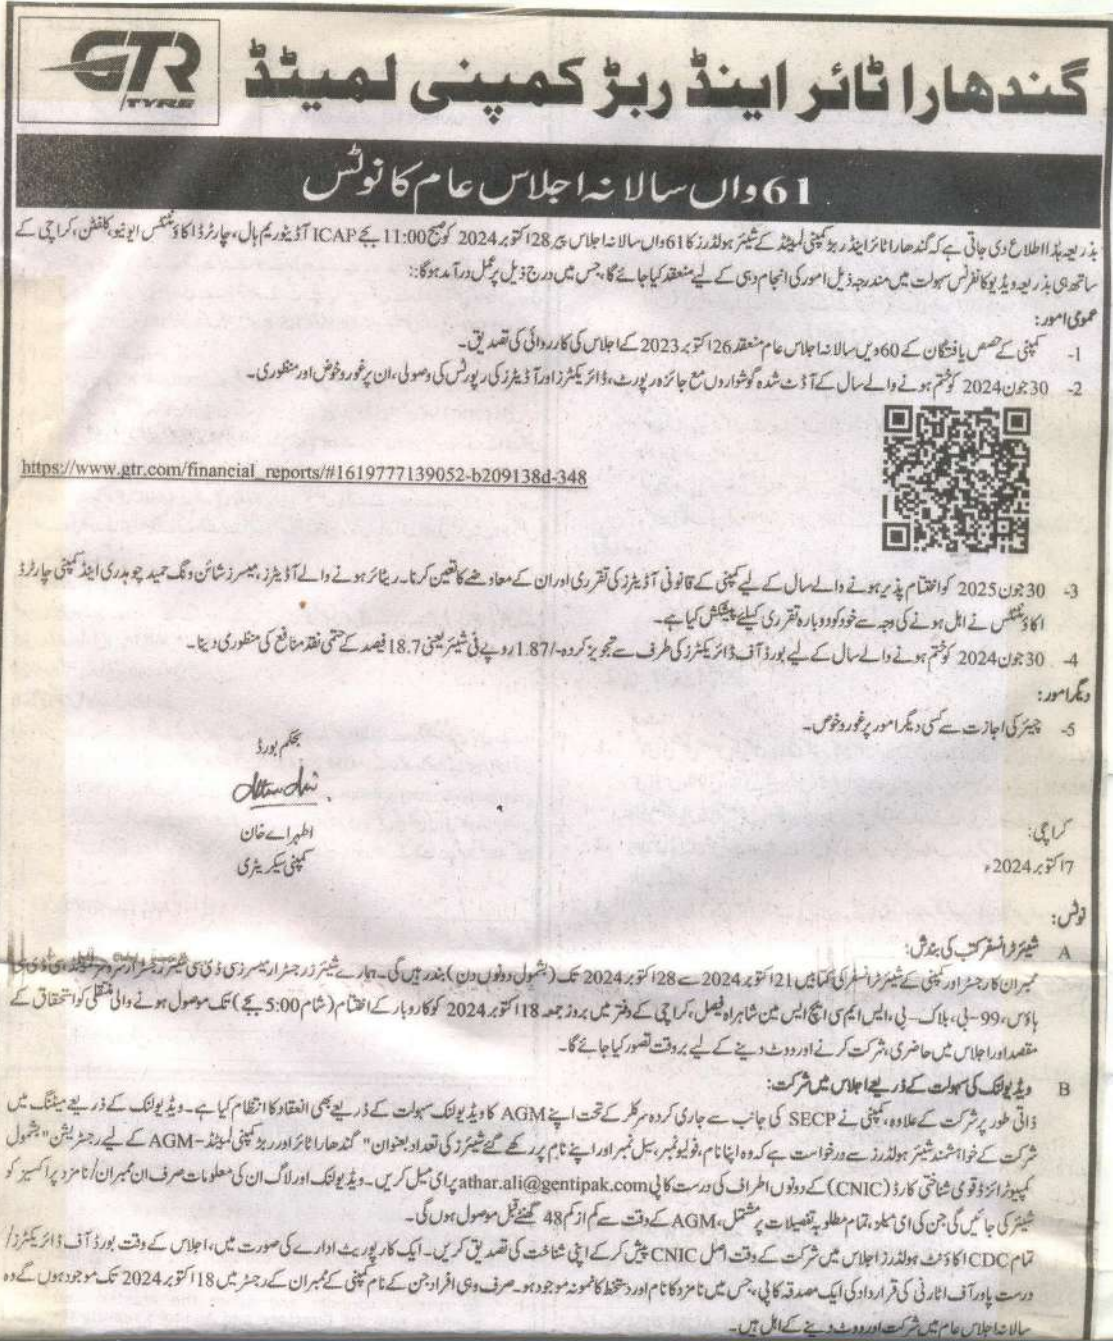 GTR
TYRE
گندھارا ٹائر اینڈ ربڑ کمپنی لمیٹڈ
61 واں سالانہ اجلاس عام کا نوٹس
بذریعہ ہذا اطلاع دی جاتی ہے کہ گندھارا ٹائر اینڈ ربڑ کمپنی لمیٹڈ کے شیئر ہولڈرز کا 61 واں سالانہ اجلاس پیر 28 اکتوبر 2024 کو صبح 11:00 بجے ICAP آڈیٹوریم ہال، چارٹرڈ اکاؤنٹنٹس ایونیو، کلفٹن، کراچی کے
ساتھ ہی بذریعہ ویڈیو کانفرنس سہولت میں مندرجہ ذیل امور کی انجام دہی کے لیے منعقد کیا جائے گا، جس میں درج ذیل پر عمل درآمد ہوگا::
عمومی امور:
1- کمپنی کے حصص یافتگان کے 60 ویں سالانہ اجلاس عام منعقد 26 اکتوبر 2023 کے اجلاس کی کارروائی کی تصدیق۔
2- 30 جون 2024 کو ختم ہونے والے سال کے آڈٹ شدہ گوشواروں مع جائزہ رپورٹ، ڈائریکٹرز اور آڈیٹرز کی رپورٹس کی وصولی، ان پر غور و خوض اور منظوری۔
https://www.gtr.com/financial_reports/#1619777139052-b209138d-348
3- 30 جون 2025 کو اختتام پذیر ہونے والے سال کے لیے کمپنی کے قانونی آڈیٹرز کی تقرری اور ان کے معاوضے کا تعین کرنا۔ ریٹائر ہونے والے آڈیٹرز، میسرز شائن ونگ حمید چوہدری اینڈ کمپنی چارٹرڈ
اکاؤنٹنٹس نے اہل ہونے کی وجہ سے خود کو دوبارہ تقرری کیلئے پیشکش کیا ہے۔
4- 30 جون 2024 کو ختم ہونے والے سال کے لیے بورڈ آف ڈائریکٹرز کی طرف سے تجویز کردہ -/1.87 روپے فی شیئر یعنی 18.7 فیصد کے حتمی نقد منافع کی منظوری دینا۔
دیگر امور:
5- چیئر کی اجازت سے کسی دیگر امور پر غور و خوض۔
بحکم بورڈ
اطہر اے خان
کمپنی سیکریٹری
کراچی:
7 اکتوبر 2024ء
نوٹس:
A شیئر ٹرانسفر کتب کی بندش:
ممبران کا رجسٹر اور کمپنی کے شیئر ٹرانسفر کی کتابیں 21 اکتوبر 2024 سے 28 اکتوبر 2024 تک (بشمول دونوں دن) بند رہیں گی۔ ہمارے شیئرز رجسٹرار میسرز سی ڈی سی شیئر رجسٹرار سروسز لمیٹڈ، سی ڈی سی
ہاؤس، 99-بی، بلاک-بی، ایس ایم سی ایچ ایس مین شاہراہ فیصل، کراچی کے دفتر میں بروز جمعہ 18 اکتوبر 2024 کو کاروبار کے اختتام (شام 5:00 بجے) تک موصول ہونے والی منتقلی کو استحقاق کے
مقصد اور اجلاس میں حاضری، شرکت کرنے اور ووٹ دینے کے لیے بروقت تصور کیا جائے گا۔
B ویڈیو لنک کی سہولت کے ذریعے اجلاس میں شرکت:
ذاتی طور پر شرکت کے علاوہ، کمپنی نے SECP کی جانب سے جاری کردہ سرکلر کے تحت اپنے AGM کا ویڈیو لنک سہولت کے ذریعے بھی انعقاد کا انتظام کیا ہے۔ ویڈیو لنک کے ذریعے میٹنگ میں
شرکت کے خواہشمند شیئر ہولڈرز سے درخواست ہے کہ وہ اپنا نام، فولیو نمبر، سیل نمبر اور اپنے نام پر رکھے گئے شیئرز کی تعداد بعنوان "گندھارا ٹائر اور ربڑ کمپنی لمیٹڈ-AGM کے لیے رجسٹریشن" بشمول
کمپیوٹرائزڈ قومی شناختی کارڈ (CNIC) کے دونوں اطراف کی درست کاپی athar.ali@gentipak.com پر ای میل کریں۔ ویڈیو لنک اور لاگ ان کی معلومات صرف ان ممبران/نامزد پراکسیز کو
شیئر کی جائیں گی جن کی ای میلز، تمام مطلوبہ تفصیلات پر مشتمل، AGM کے وقت سے کم از کم 48 گھنٹے قبل موصول ہوں گی۔
تمام CDC اکاؤنٹ ہولڈرز اجلاس میں شرکت کے وقت اصل CNIC پیش کر کے اپنی شناخت کی تصدیق کریں۔ ایک کارپوریٹ ادارے کی صورت میں، اجلاس کے وقت بورڈ آف ڈائریکٹرز/
درست پاور آف اٹارنی کی قرارداد کی ایک مصدقہ کاپی، جس میں نامزد کا نام اور دستخط کا نمونہ موجود ہو۔ صرف وہی افراد جن کے نام کمپنی کے ممبران کے رجسٹر میں 18 اکتوبر 2024 تک موجود ہوں گے وہ
سالانہ اجلاس عام میں شرکت اور ووٹ دینے کے اہل ہیں۔